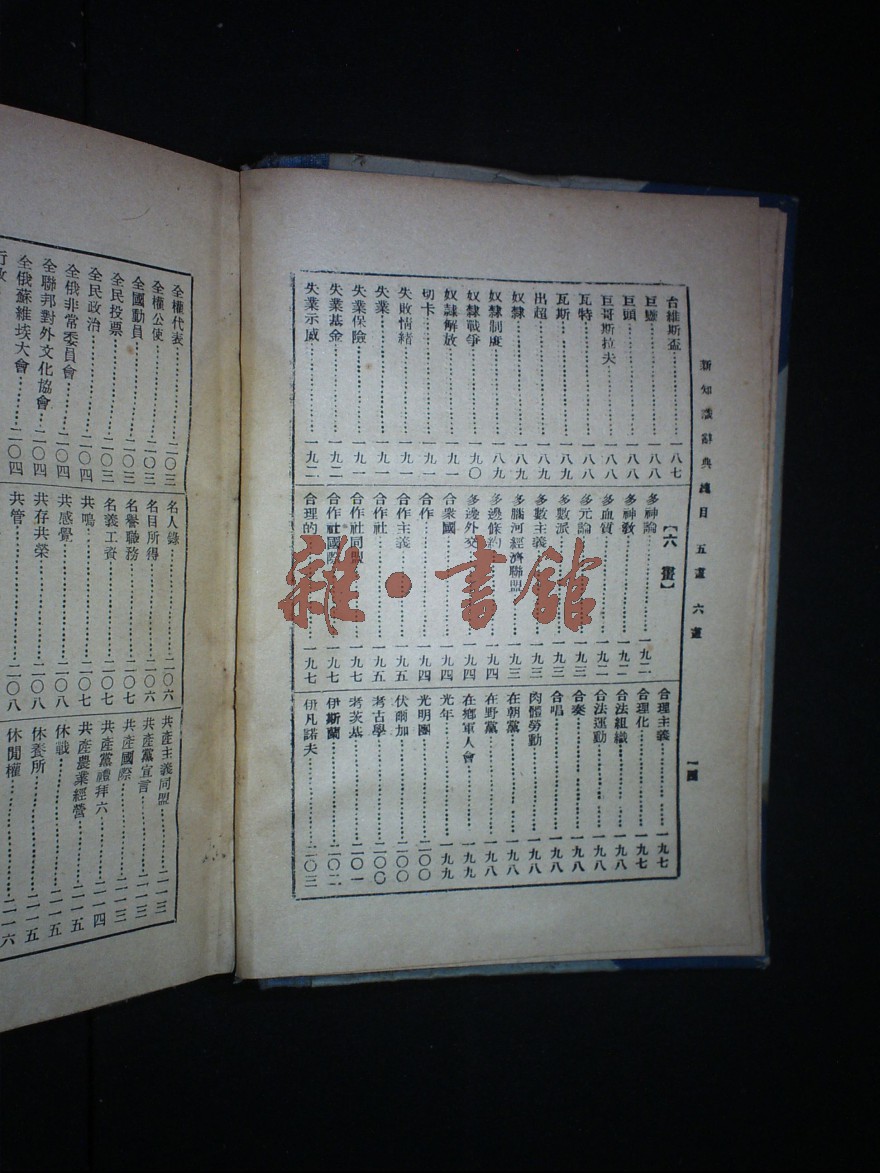 新知識辭典總目 五畫 六畫
一四
台維斯盃………一八七
一八八
巨頭………一八八
巨哥斯拉夫………一八八
瓦特………一八八
瓦斯………一八九
出超………一八九
奴隸………一八九
奴隸制度………一八九
奴隸戰爭………一九〇
奴隸解放………一九一
切卡………一九一
失敗情緒………一九一
失業………一九一
失業保險………一九一
失業基金………一九二
失業示威………一九二
【六畫】
多神論………一九二
多神教………一九二
多血質………一九二
多元論………一九三
多數派………一九三
多數主義………一九三
多腦河經濟聯盟………一九三
多邊條約………一九四
多邊外交………一九四
合衆國………一九四
合作………一九四
合作主義………一九五
合作社………一九五
合作社同盟………一九七
合作社國際………一九七
合理的………一九七
合理主義………一九七
合理化………一九七
合法組織………一九八
合法運動………一九八
合奏………一九八
合唱………一九八
肉體勞動………一九八
在朝黨………一九八
在野黨………一九八
在鄉軍人會………一九九
光年………一九九
光明團………二〇〇
伏爾加………二〇〇
考古學………二〇〇
考茨基………二〇一
伊斯蘭………二〇二
伊凡諾夫………二〇三
全權代表………二〇三
全權公使………二〇三
全國動員………二〇三
全民投票………二〇三
全民政治………二〇四
全俄非常委員會………二〇四
全聯邦對外文化協會………二〇四
全俄蘇維埃大會………二〇四
行政
名人錄………二〇六
名目所得………二〇六
名譽職務………二〇七
名義工資………二〇七
共鳴………二〇七
共感覺………二〇八
共存共榮………二〇八
共管………二〇八
共產主義同盟………二一三
共產黨宣言………二一三
共產國際………二一三
共產黨禮拜六………二一四
共產農業經營………二一五
休戰………二一五
休養所………二一五
休閒權………二一六
雜·書館